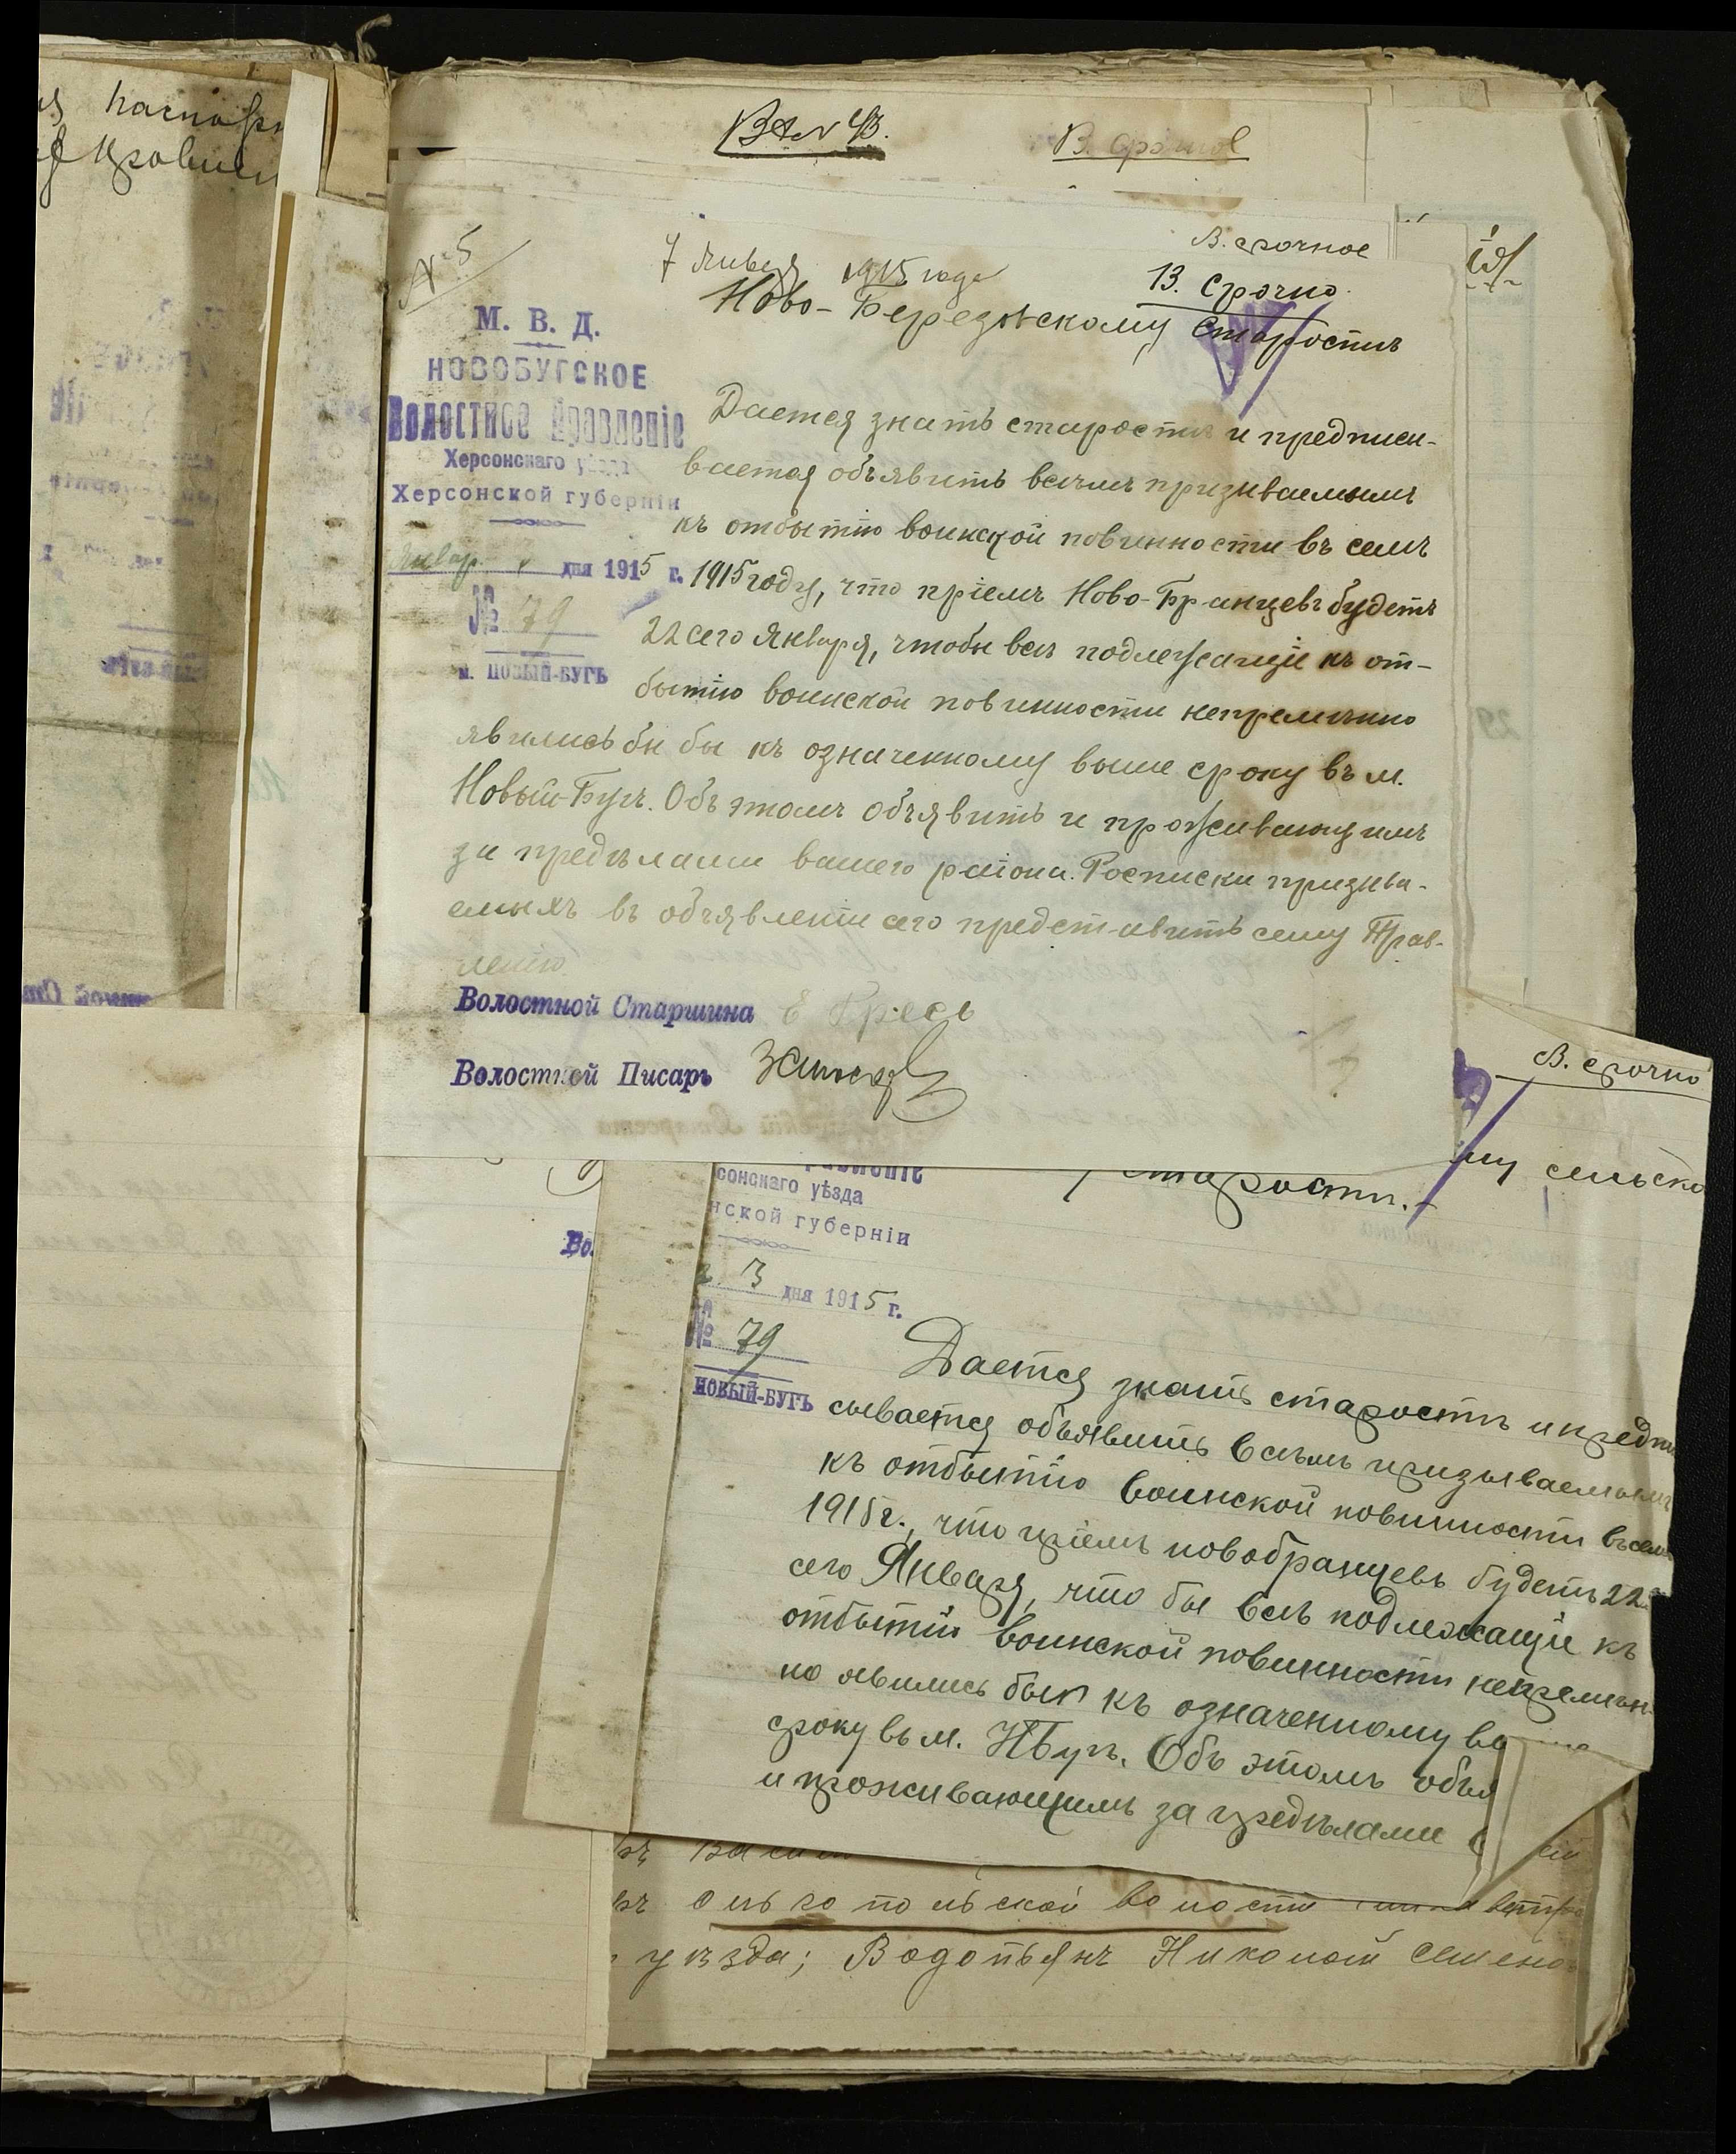 В. срочное
№ 5
7 Января 1915 года
В. Срочно.
Ново-Березовскому Старостѣ
М. В. Д.
НОВОБУГСКОЕ
Волостное Правленіе
Херсонскаго уѣзда
Херсонской губерніи
Январ. дня 1915 г.
№ 79
м. НОВЫЙ-БУГЪ
Дается знать старостѣ и предписы-
вается объявить всѣмъ призываемымъ
къ отбытію воинской повинности въ семъ
1915 году, что пріемъ Ново-Бранцевъ будетъ
22 сего Января, чтобы всѣ подлежащіе къ от-
бытію воинской повинности непремѣнно
явились бы бы къ означенному выше сроку въ м.
Новый-Бугъ. Объ этомъ объявить и проживающимъ
за предѣлами вашего района. Росписки призыва-
емыхъ въ объявленіи сего представить сему Прав-
ленію.
Волостной Старшина Е Гресь
Волостной Писарь
В. срочно
му сельско
старостѣ.
сонскаго уѣзда
нской губерніи
3 дня 1915 г.
№ 79
НОВЫЙ-БУГЪ
Дается знать старостѣ и предпи
сывается объявить всѣмъ призываемымъ
къ отбытію воинской повинности въ семъ
1915 г., что пріемъ новобранцевъ будетъ 22
сего Января, что бы всѣ подлежащіе къ
отбытію воинской повинности непремѣн
но явились бы къ означенному
сроку въ м. НБугъ. Объ этомъ объя
и проживающимъ за предѣлами
Во.
ольгопольской волости
уѣзда; Водопьянъ Николай Семено